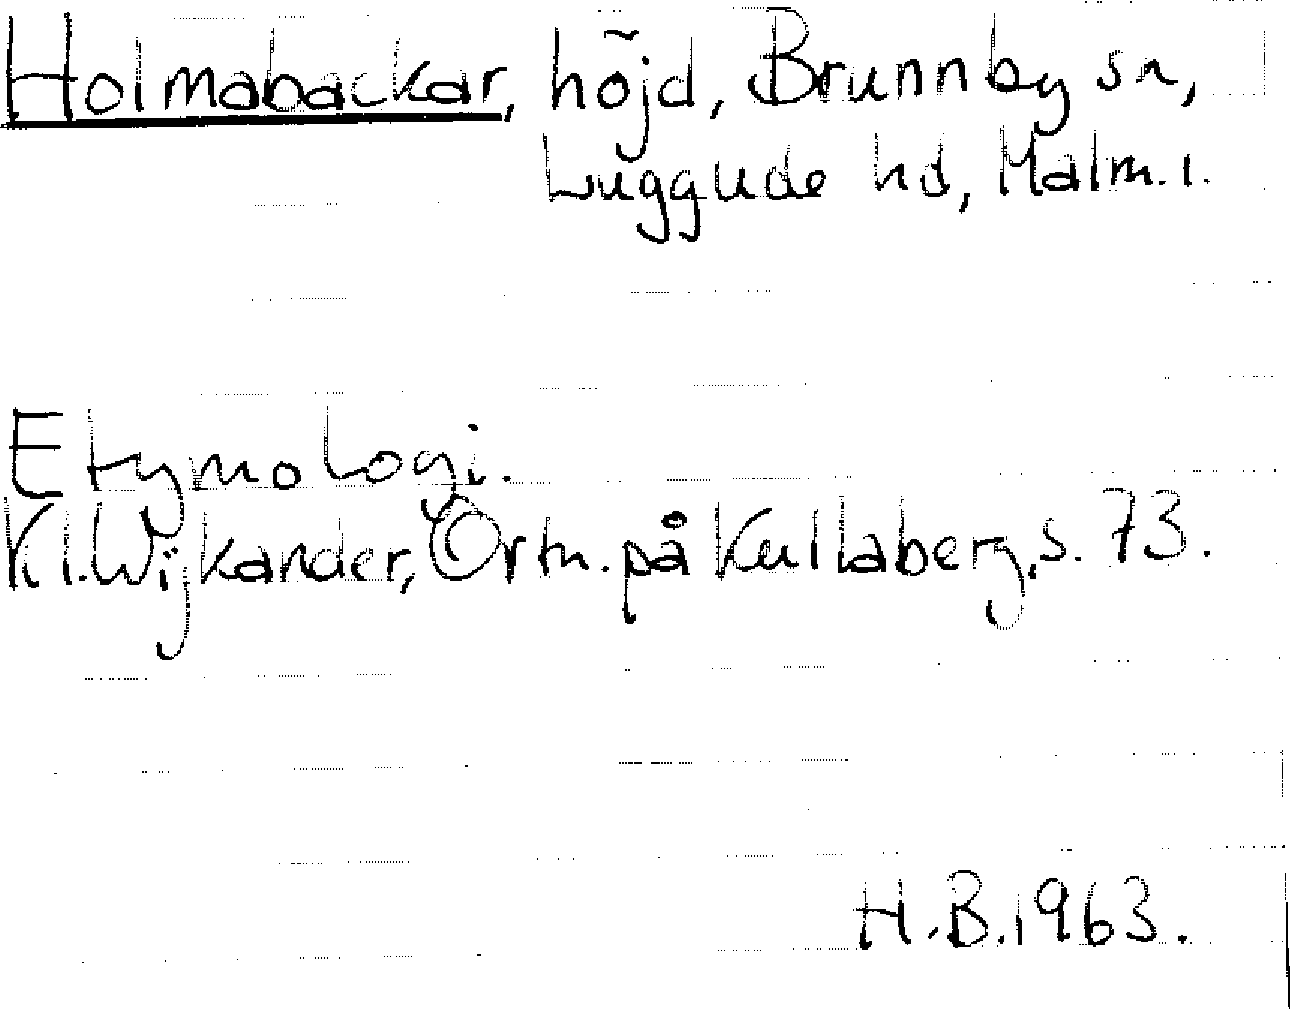 Holmabackar, höjd, Brunnby sn,
Luggude hd, Malm.l.
Etymologi.
Kl.Wijkander, Ortn. på Kullaberg, s. 73.
H.B.1963.